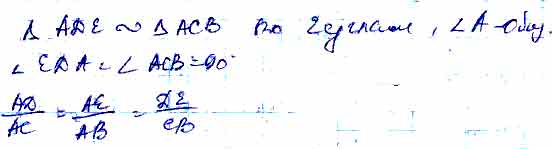 Δ ADE ∼ Δ ACB по 2 углам, ∠A - общ.
∠ EDA = ∠ ACB = 90°
AD/AC = AE/AB = DE/CB